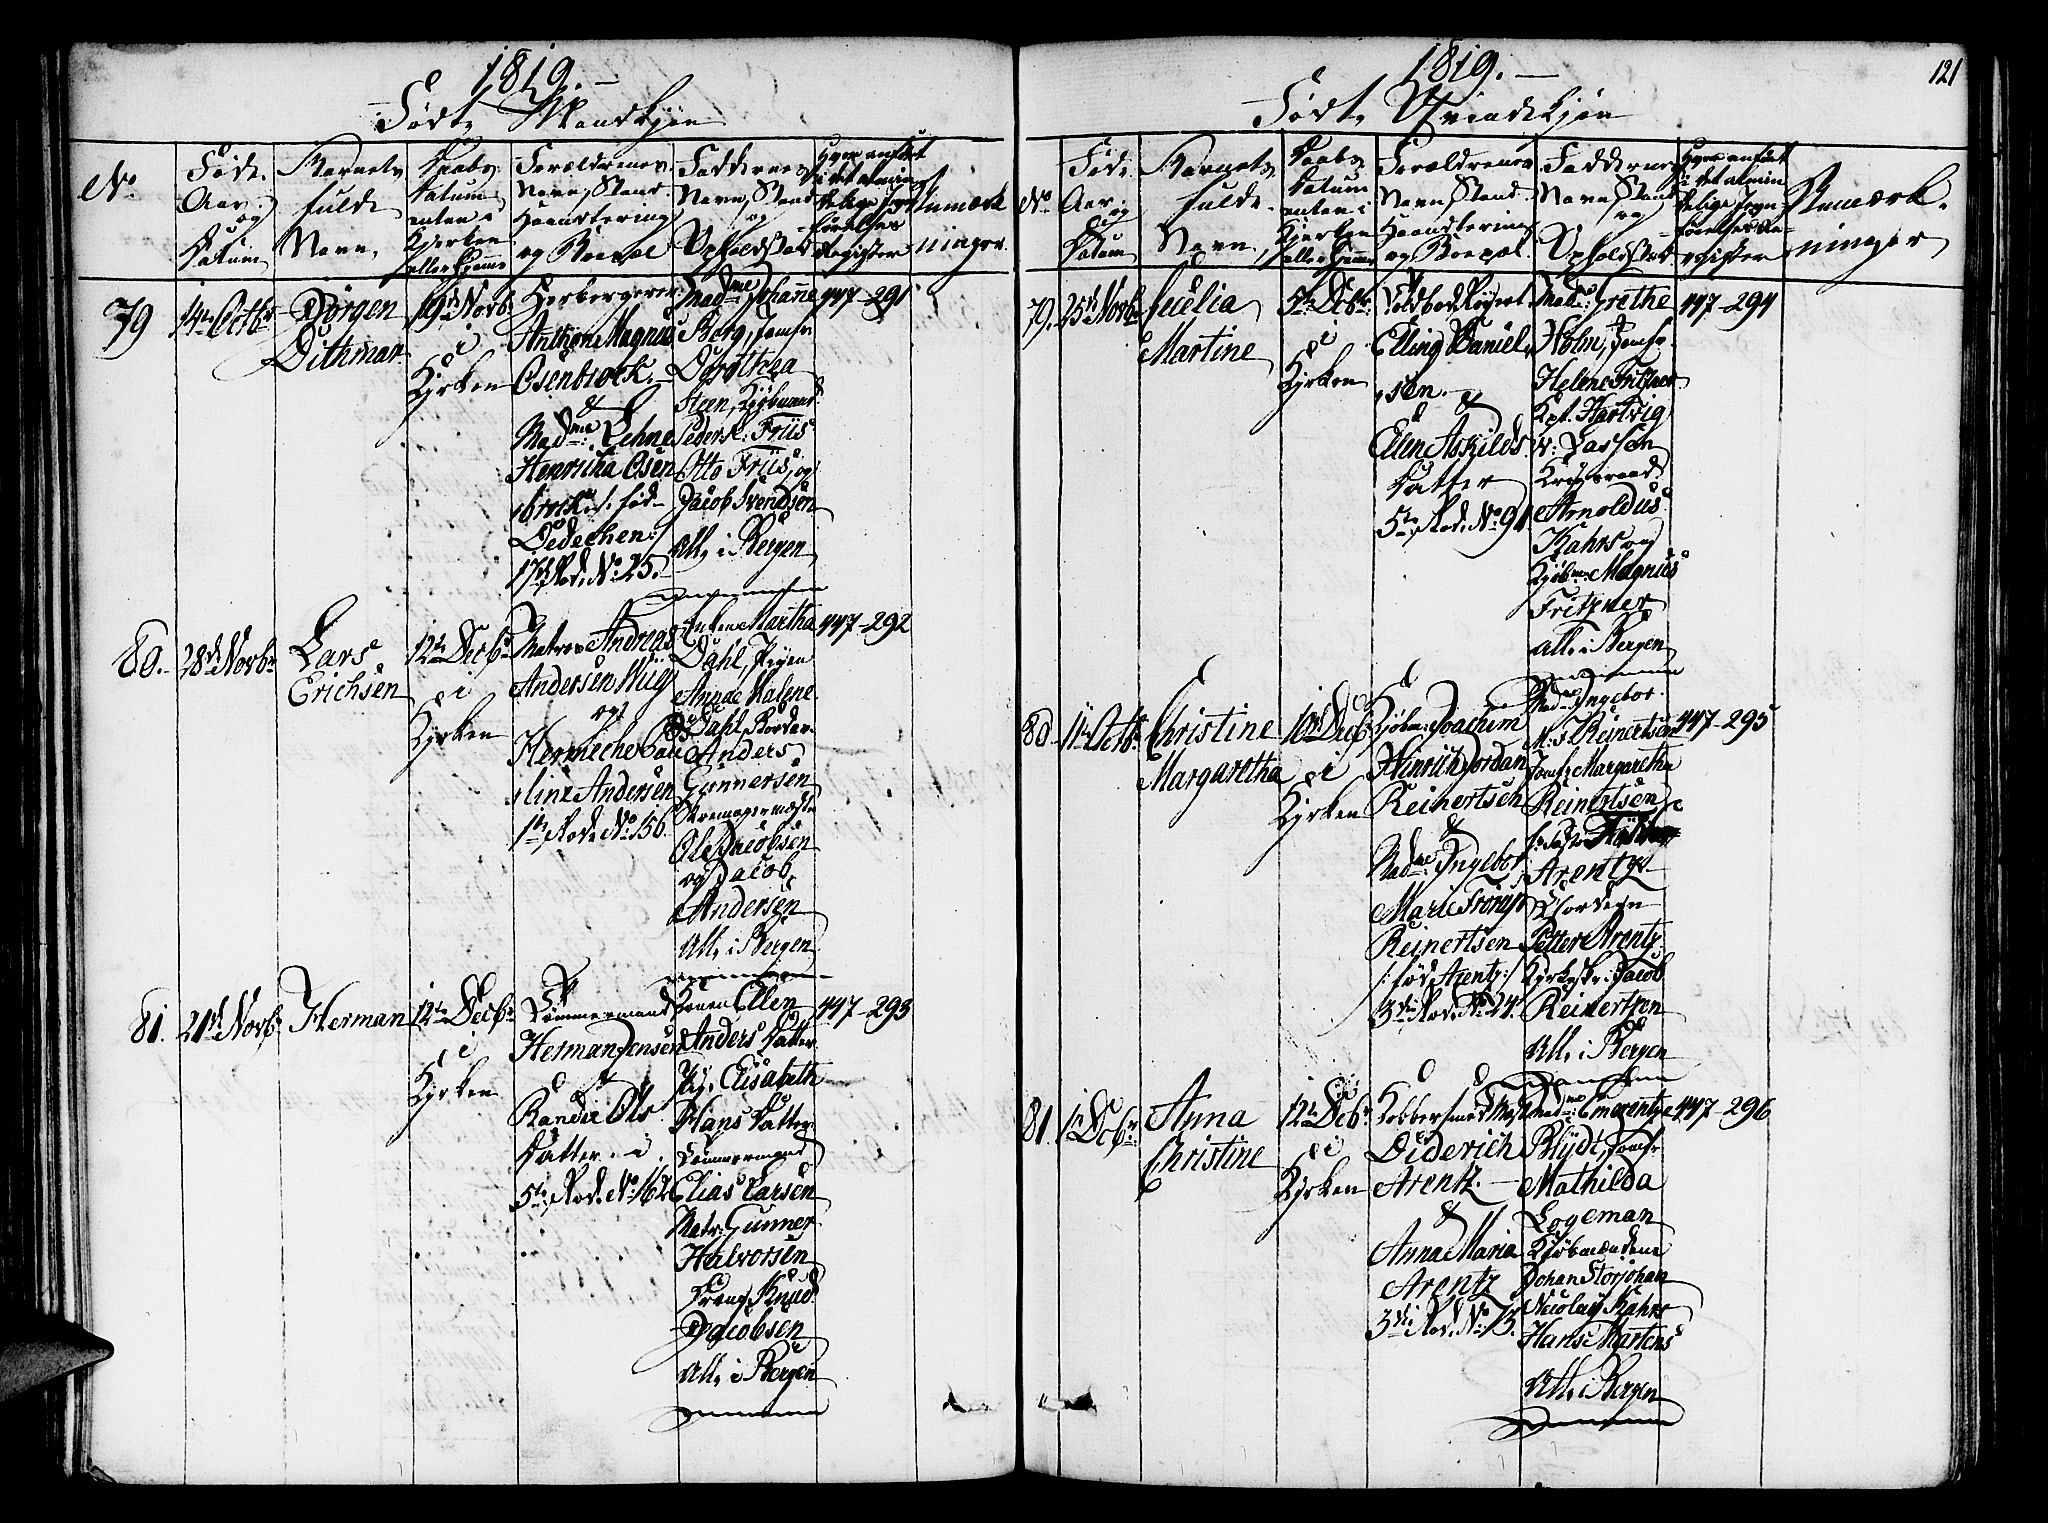 1819.
Født Mandkjøn
No
Føds.
Aar,
og
Datum
Barnets
fulde
Navn.
Daabs
Datum
enten i
Kjerken
eller Hjemme
Forældrenes
Navn, Stand
Haandtering
og Boepæl
Faddernes
Navn, Stand
og
Opholdsted
Hvor anført
i det almin
delige Jevn
førelses
Register
Anmærk
ninger
79
14de Octbr
Jørgen
Dithmar
19de Novbr
i
Kjrken
Herbergerer
Anthon Magnus
Osenbrock.
&
Madme: Lehne
Henricha Osen
brock /: fød
Dedechen :/
17de Rod. No 25.
Madme Johanne
Berg, Jomfr.
Dorothea
Steen, Kjøbmænd
Peder Friis
Otto Friis, og
Jacob Svendsen
Alle i Bergen
447-291
80.
28de Novbr
Lars
Erichsen
12te Decbr
i
Kjrken
Matros Andreas
Andersen Wiig
og
Hermeche Pau
line Andersen
1te Rod. No 156.
Enken Martha
Dahl, Pigen
Anna Malene
Dahl,
Anders
Gunnersen
Ole Jacobsen
og Jacob
Andersen
Alle i Bergen
447-292
81.
21de Novbr
Herman
12te Decbr
i
Kjrken
Tømmermand
Herman Jensen
&
Randie Ols
Datter
5te Rod. No 162
Konen Ellen
Anders Datter
Pig. Elisabeth
Hans Datter
Tømmermand
Elias Larsen
Matr: Gunner
Halvorsen
Dreng Knud
Jacobsen
Alle i Bergen
447-293
1819.
121
Født Qvindekjøn
No
Føds.
Aar,
og
Datum
Barnets
fulde
Navn.
Daabs
Datum
enten i
Kjerken
eller Hjemme
Forældrenes
Navn, Stand
Haandtering
og Boepæl.
Faddernes
Navn, Stand
og
Opholdsted
Hvor anført
i det almin
delige Jevn
førelses Re
gister
Anmærk
ninger
79.
25de Novbr
Cecilia
Martine
5te Decbr:
i
Kjrken
Elling Daniel
sen.
&
Ellen Askilds
Datter
5te Rod. No 91
Madme: Grethe
Holm, Jomfr.
Helene Fritzner
Kpt. Hartvig
v: Lasson
Krigsraad
Arnoldus
Kahrs og
Kjøbm: Magnus
Fritzner
alle i Bergen
447-294
80.
11te Octbr
Christine
Margaretha
10de Decbr
i
Kjrken
Kjøbm: Joachim
Hinrich Jordan
Reinertsen
&
Madme: Ingebor
Marie Trorup
Reinertsen
/: fød Arentz :/
3de Rod. No 24.
Madme Ingebor
M: T. Reinertsen
Jomfr Margaretha
Reinertsen
Arentz
Chordegn
Petter Arentz
Kjrkeskr: Jacob
Reinertsen
Alle i Bergen
447-295
81.
1 Decbr:
Anna
Christine
12te Decbr
i
Kjrken
Kobbersmed Mstr
Diderich
Arentz.
&
Anna Maria
Arentz
3de Rod. No 13.
Madme: Emerentze
Blydt, Jomfr
Mathilda
Logeman
Kjøbmændene
Johan Storjohan
Nicolay Kahrs
Hans Martens
Alle i Bergen
447-296